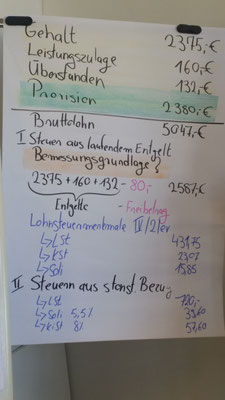 Gehalt 2375,-€
Leistungszulage 160,-€
Überstunden 132,-€
Provision 2380,-€
Bruttolohn 5047,-€
I Steuern aus laufendem Entgelt
Bemessungsgrundlage?
2375 + 160 + 132 - 80,- 2587,€
Entgelte - Freibetrag
Lohnsteuermerkmale IV/2/ev
↳ LSt 431,75
↳ KSt
↳ Soli
II Steuern aus sonst. Bezug
↳ LSt 720,-
↳ Soli 5,5% 39,60
↳ KiSt 8% 57,60